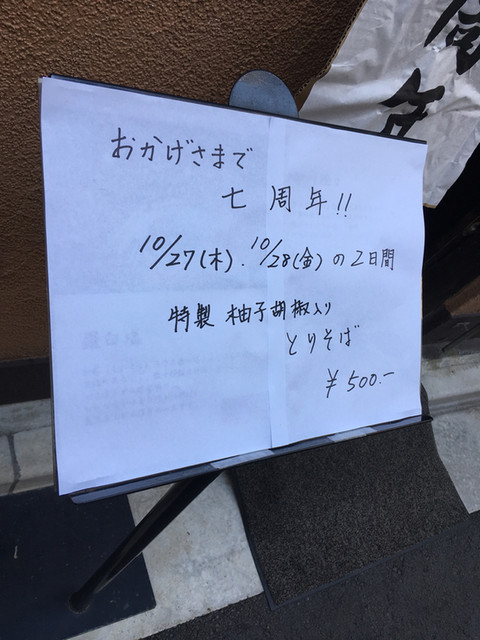 おかげさまで
七周年!!
10/27(木).10/28(金)の2日間
特製 柚子胡椒入り
とりそば
¥500.-